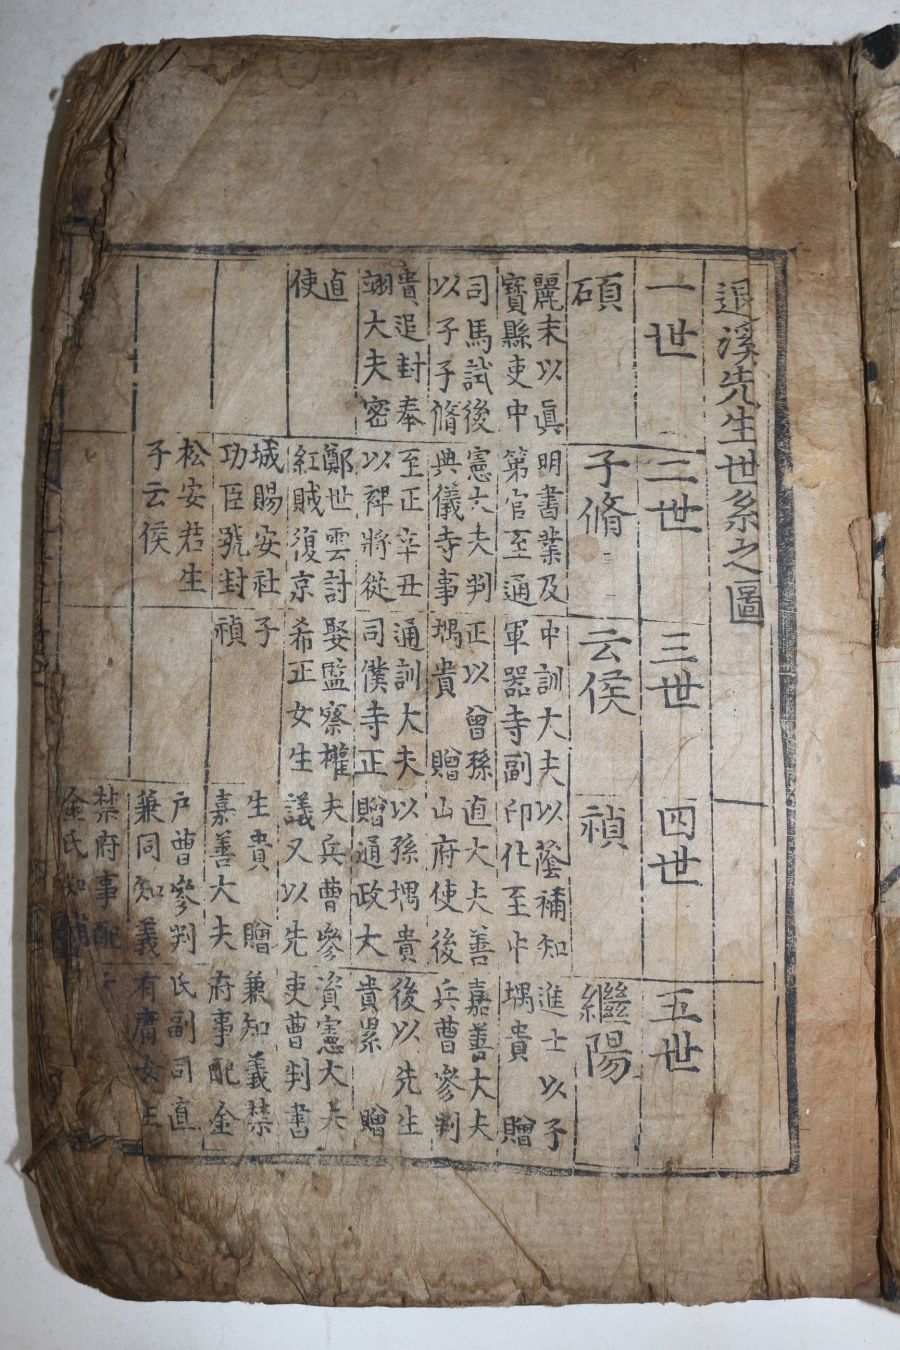 退溪先生世系之圖
一世
碩
麗末以眞
寶縣吏中
司馬試後
以子子脩
貴追封奉
翊大夫密
直
使
二世
子脩
明書業及
第官至通
憲大夫判
典儀寺事
至正辛丑
以裨將從
鄭世雲討
紅賊復京
城賜安社
功臣號封
松安君生
子云侯
三世
云侯
中訓大夫
軍器寺副
正以曾孫
堣貴 贈
通訓大夫
司僕寺正
娶監察權
希正女生
子
禎
四世
禎
以蔭補知
印仕至中
直大夫善
山府使後
以孫堣貴
贈通政大
夫兵曹參
議又以先
生貴 贈
嘉善大夫
戶曹參判
兼同知義
禁府事配
金氏知
五世
繼陽
進士以子
堣貴 贈
嘉善大夫
兵曹參判
後以先生
貴累 贈
資憲大夫
吏曹判書
兼知義禁
府事配金
氏副司直
有庸女生